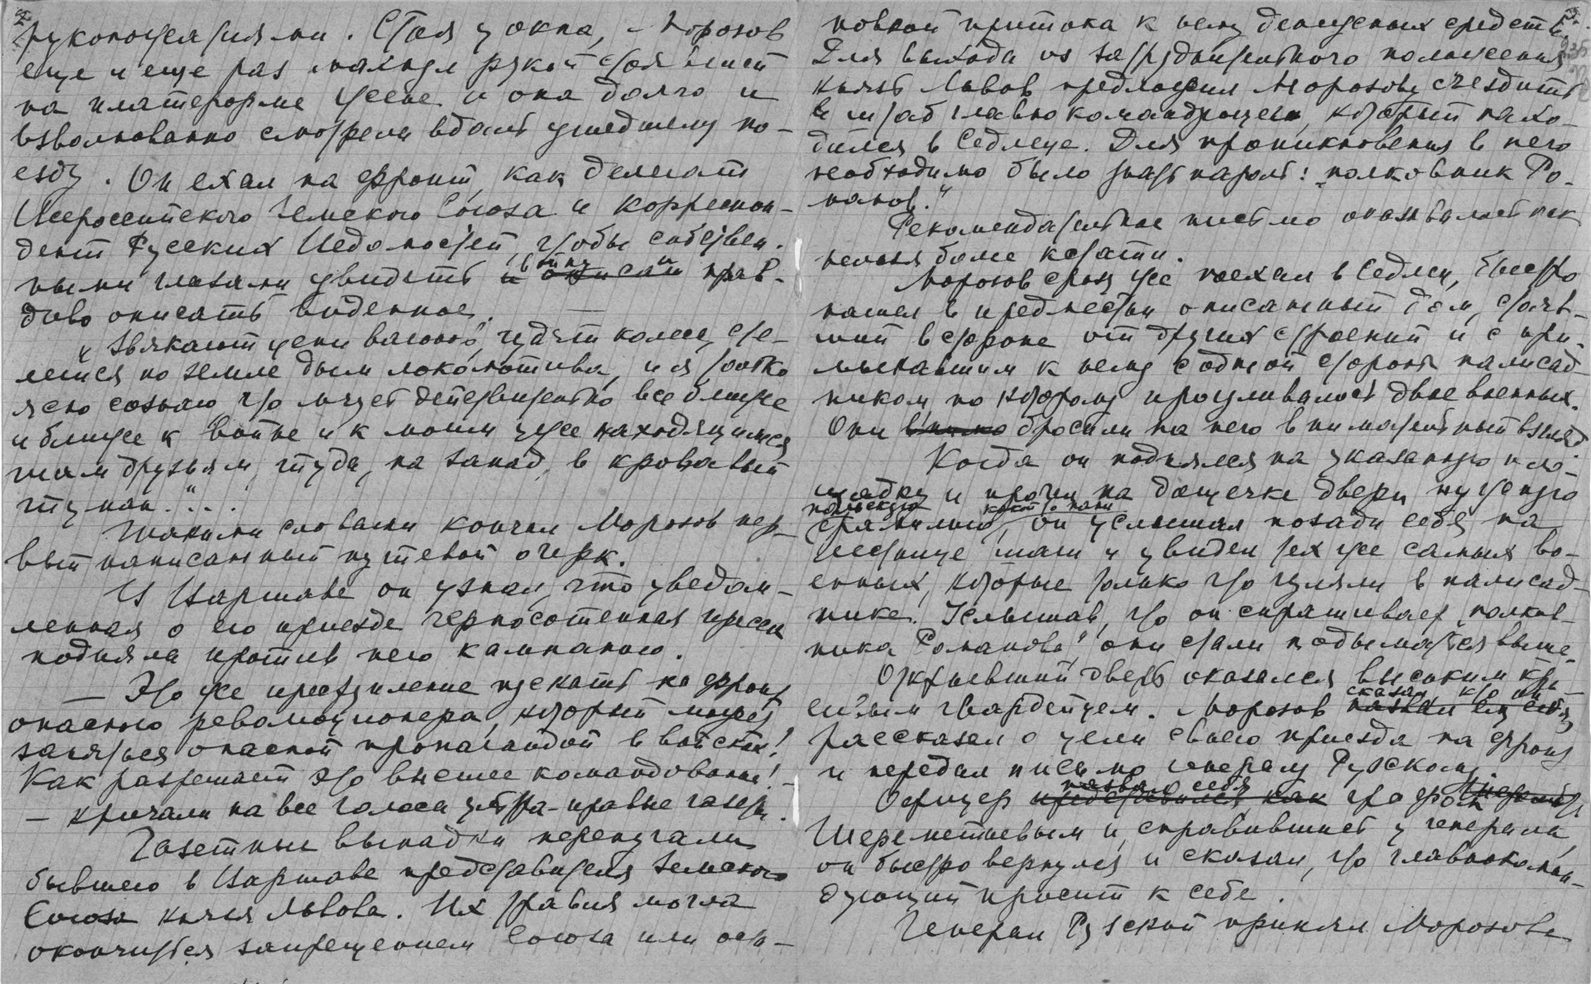 рукоплесканиями. Стоя у окна, Морозов
еще и еще раз махнул рукой стоявшей
на платформе Ксене и она долго и
взволнованно смотрела вдаль ушедшему по-
езду. Он ехал на фронт, как делегат
Всероссийского Земского Союза и корреспон-
дент Русских Ведомостей, чтобы собствен-
ными глазами увидеть и прав-
диво описать виденное.
„Звякают цепи вагонов, гудят колеса, сте-
лется по земле дым локомотива, и я только
ясно сознаю, что мчует действительно все ближе
и ближе к войне и к моим уже находящимся
там друзьям, туда, на запад, в кровавый
туман...."
Такими словами кончил Морозов пер-
вый написанный путевой очерк.
В Варшаве он узнал, что уведом-
ленная о его приезде черносотенная пресса
подняла против него кампанию.
— Это же преступление пускать на фронт
опасного революционера, который может
заняться опасной пропагандой в войсках!
Как разрешает это высшее командование!
— кричали на все голоса ультра-правые газеты.
Газетные выпадки перепугали
бывшего в Варшаве представителя Земского
Союза князя Львова. Их травля могла
окончиться запрещением Союза или оста-
новкой притока к нему денежных средств.
Для выхода из затруднительного положения
князь Львов предложил Морозову съездить
в штаб главнокомандующего, который нахо-
дился в Седлеце. Для проникновения в него
необходимо было знать пароль: „полковник Ро-
манов."
Рекомендательное письмо оказывалось как
нельзя более кстати.
Морозов сразу же поехал в Седлец, быстро
нашел в предместьи описанный дом, стояв-
ший в стороне от других строений и с при-
мыкавшим к нему с одной стороны палисад-
ником, по которому прогуливалось двое военных.
Они бросили на него внимательный взгляд.
Когда он поднялся на указанную пло-
щадку и прочел на дощечке двери нужную
польскую фамилию, он услышал позади себя на
лестнице шаги и увидел тех же самых во-
енных, которые только что гуляли в палисад-
нике. Услышав, что он спрашивает „полков-
ника Романова", они стали подыматься выше.
Открывший дверь оказался высоким кра-
сивым гвардейцем. Морозов сказал, кто он
рассказал о цели своего приезда на фронт
и передал письмо генералу Рузскому.
Офицер назвал себя графом
Шереметьевым и, справившись у генерала,
он быстро вернулся и сказал, что главнокоман-
дующий просит к себе.
Генерал Рузский принял Морозова